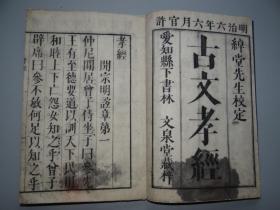 明治六年六月官許
綽堂先生校定
古文孝經
愛知縣下書林 文泉堂藏梓
孝經
開宗明誼章第一
仲尼閒居曾子侍坐子曰參先
王有至德要道以訓天下民用
和睦上下亡怨女知之乎曾子
辟席曰參不敏何足以知之乎